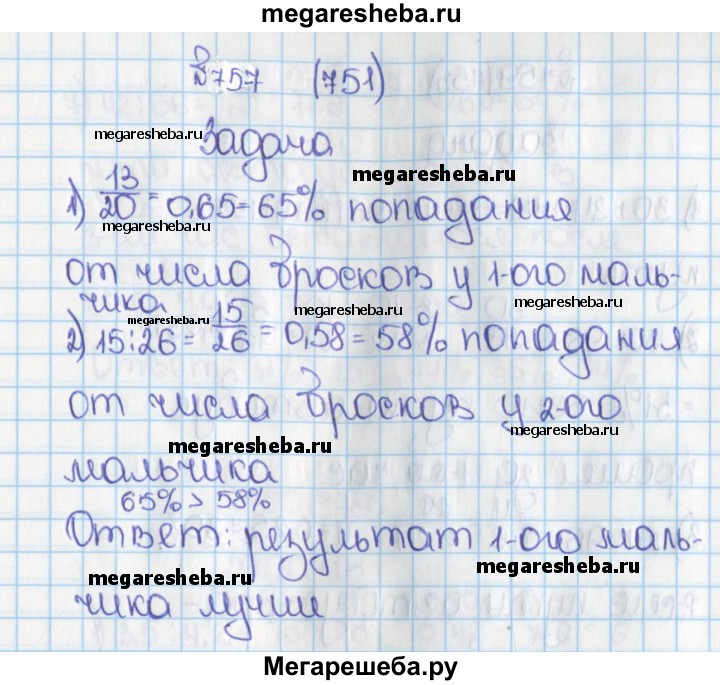 megaresheba.ru
№757 (751)
megaresheba.ru Задача
megaresheba.ru
1) 13/20 = 0,65 = 65% попадания
megaresheba.ru
от числа бросков у 1-ого маль-
чика megaresheba.ru megaresheba.ru
2) 15:26 = 15/26 = 0,58 = 58% попадания
megaresheba.ru
от числа бросков у 2-ого
megaresheba.ru megaresheba.ru
мальчика
65% > 58%
Ответ: результат 1-ого маль-
megaresheba.ru megaresheba.ru
чика лучши
megaresheba.ru
Мегарешеба.ру